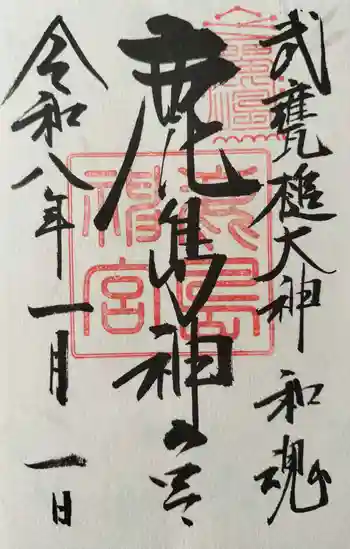 武甕槌大神 和魂
鹿島神宮
令和八年 一月 一日
鹿島神宮